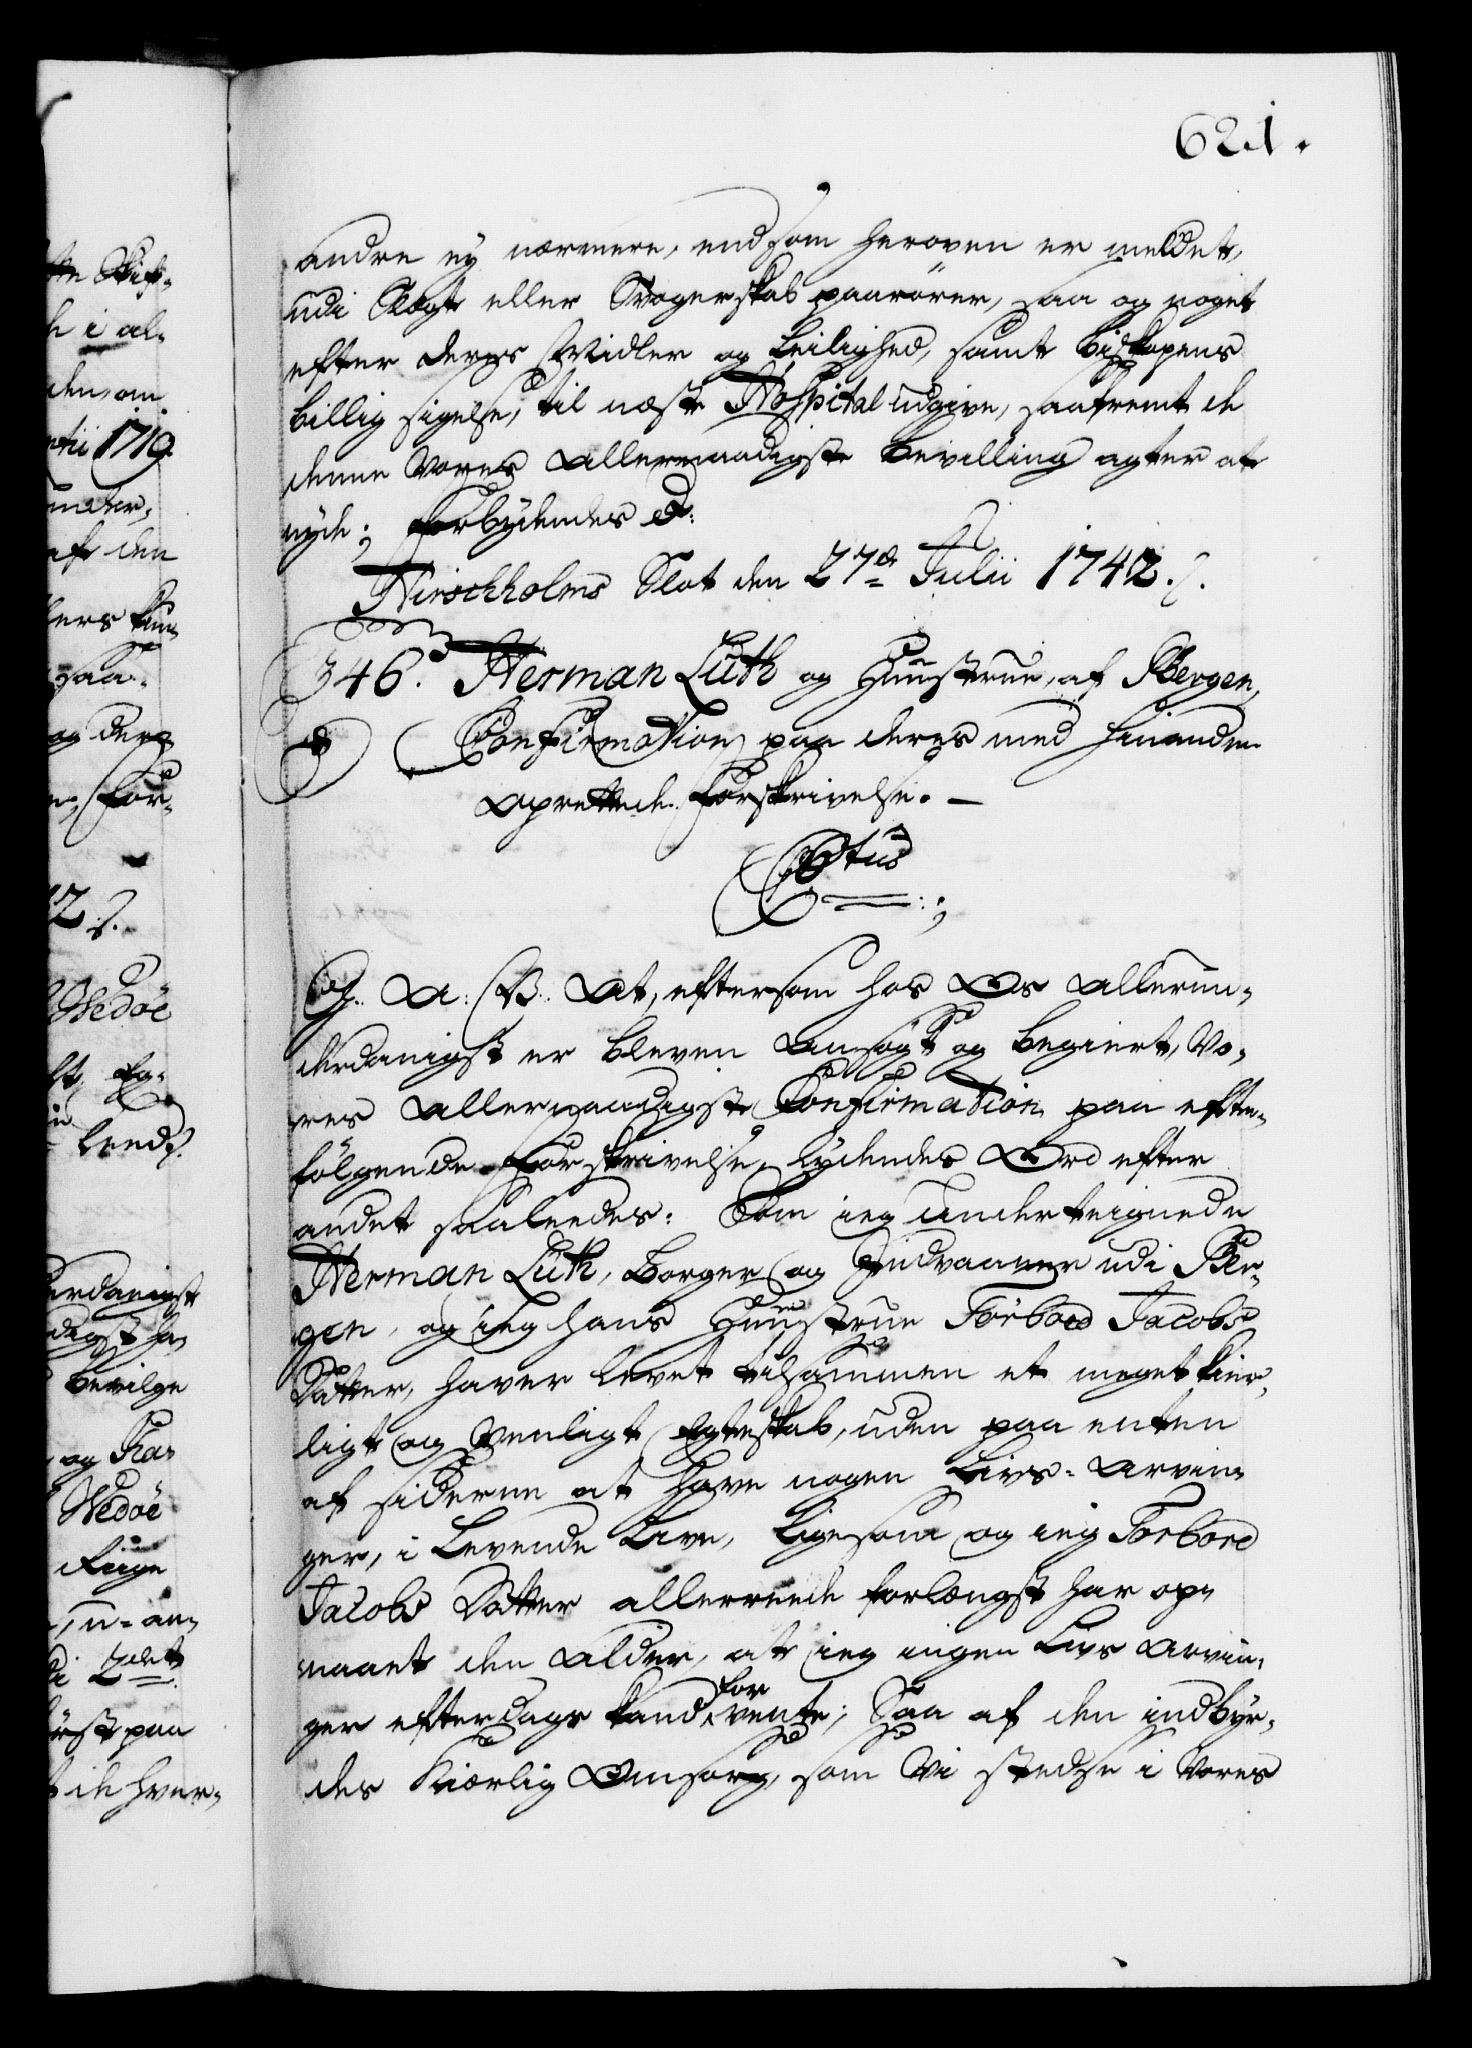 621.
andre ey nærmere, end som heroven er meldet,
udi Slægt eller Svogerskab paarører, saa og noget
efter deres Midler og Leilighed, samt Biskopens
billig sigelse, til næste Hospital udgive, saafremt de
denne Vores allernaadigste Bevilling agter at
nyde; Forbydendes &:
Hirschholms Slot den 27de Julii 1742.
346. Herman Lüth og Hüüstrüe, af Bergen,
Confirmation paa deres med hinanden
oprettede Forskrivelse. —
C6tus
G: A: V: At, eftersom hos Os allerun-
derdanigst er bleven ansøgt og begiert, Vo-
res allernaadigste Confirmation paa efter-
følgende Forskrivelse, lydendes Ord efter
andet saaledes: Som ieg underteignede
Herman Lüth, Borger og Indvaaner udi Ber-
gen, og ieg hans Hüüstrüe Torbord Jacobs
Datter, haver levet tilsammen et meget kier-
ligt og venligt Egteskab, uden paa enten
af siderne at have nogen Livs-Arvin-
ger, i Levende Live, ligesom og ieg Torbord
Jacobs Datter allerreede forlængst har op-
naaet den Alder, at ieg ingen Livs Arvin-
ger efterdags kand forvente; Saa af den indbyr-
des kiærlig Omsorg, som Vi stedse i Vores